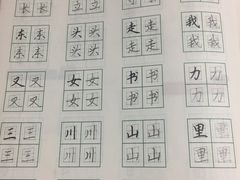 长 长 立 立
东 东 头 头 走 走 我 我
东 东 头 头 走 走 我 我
又 又 女 女 书 书 力 力
又 又 女 女 书 书 力 力
三 三 川 川 山 山 里 里
三 三 川 川 山 山 里 里